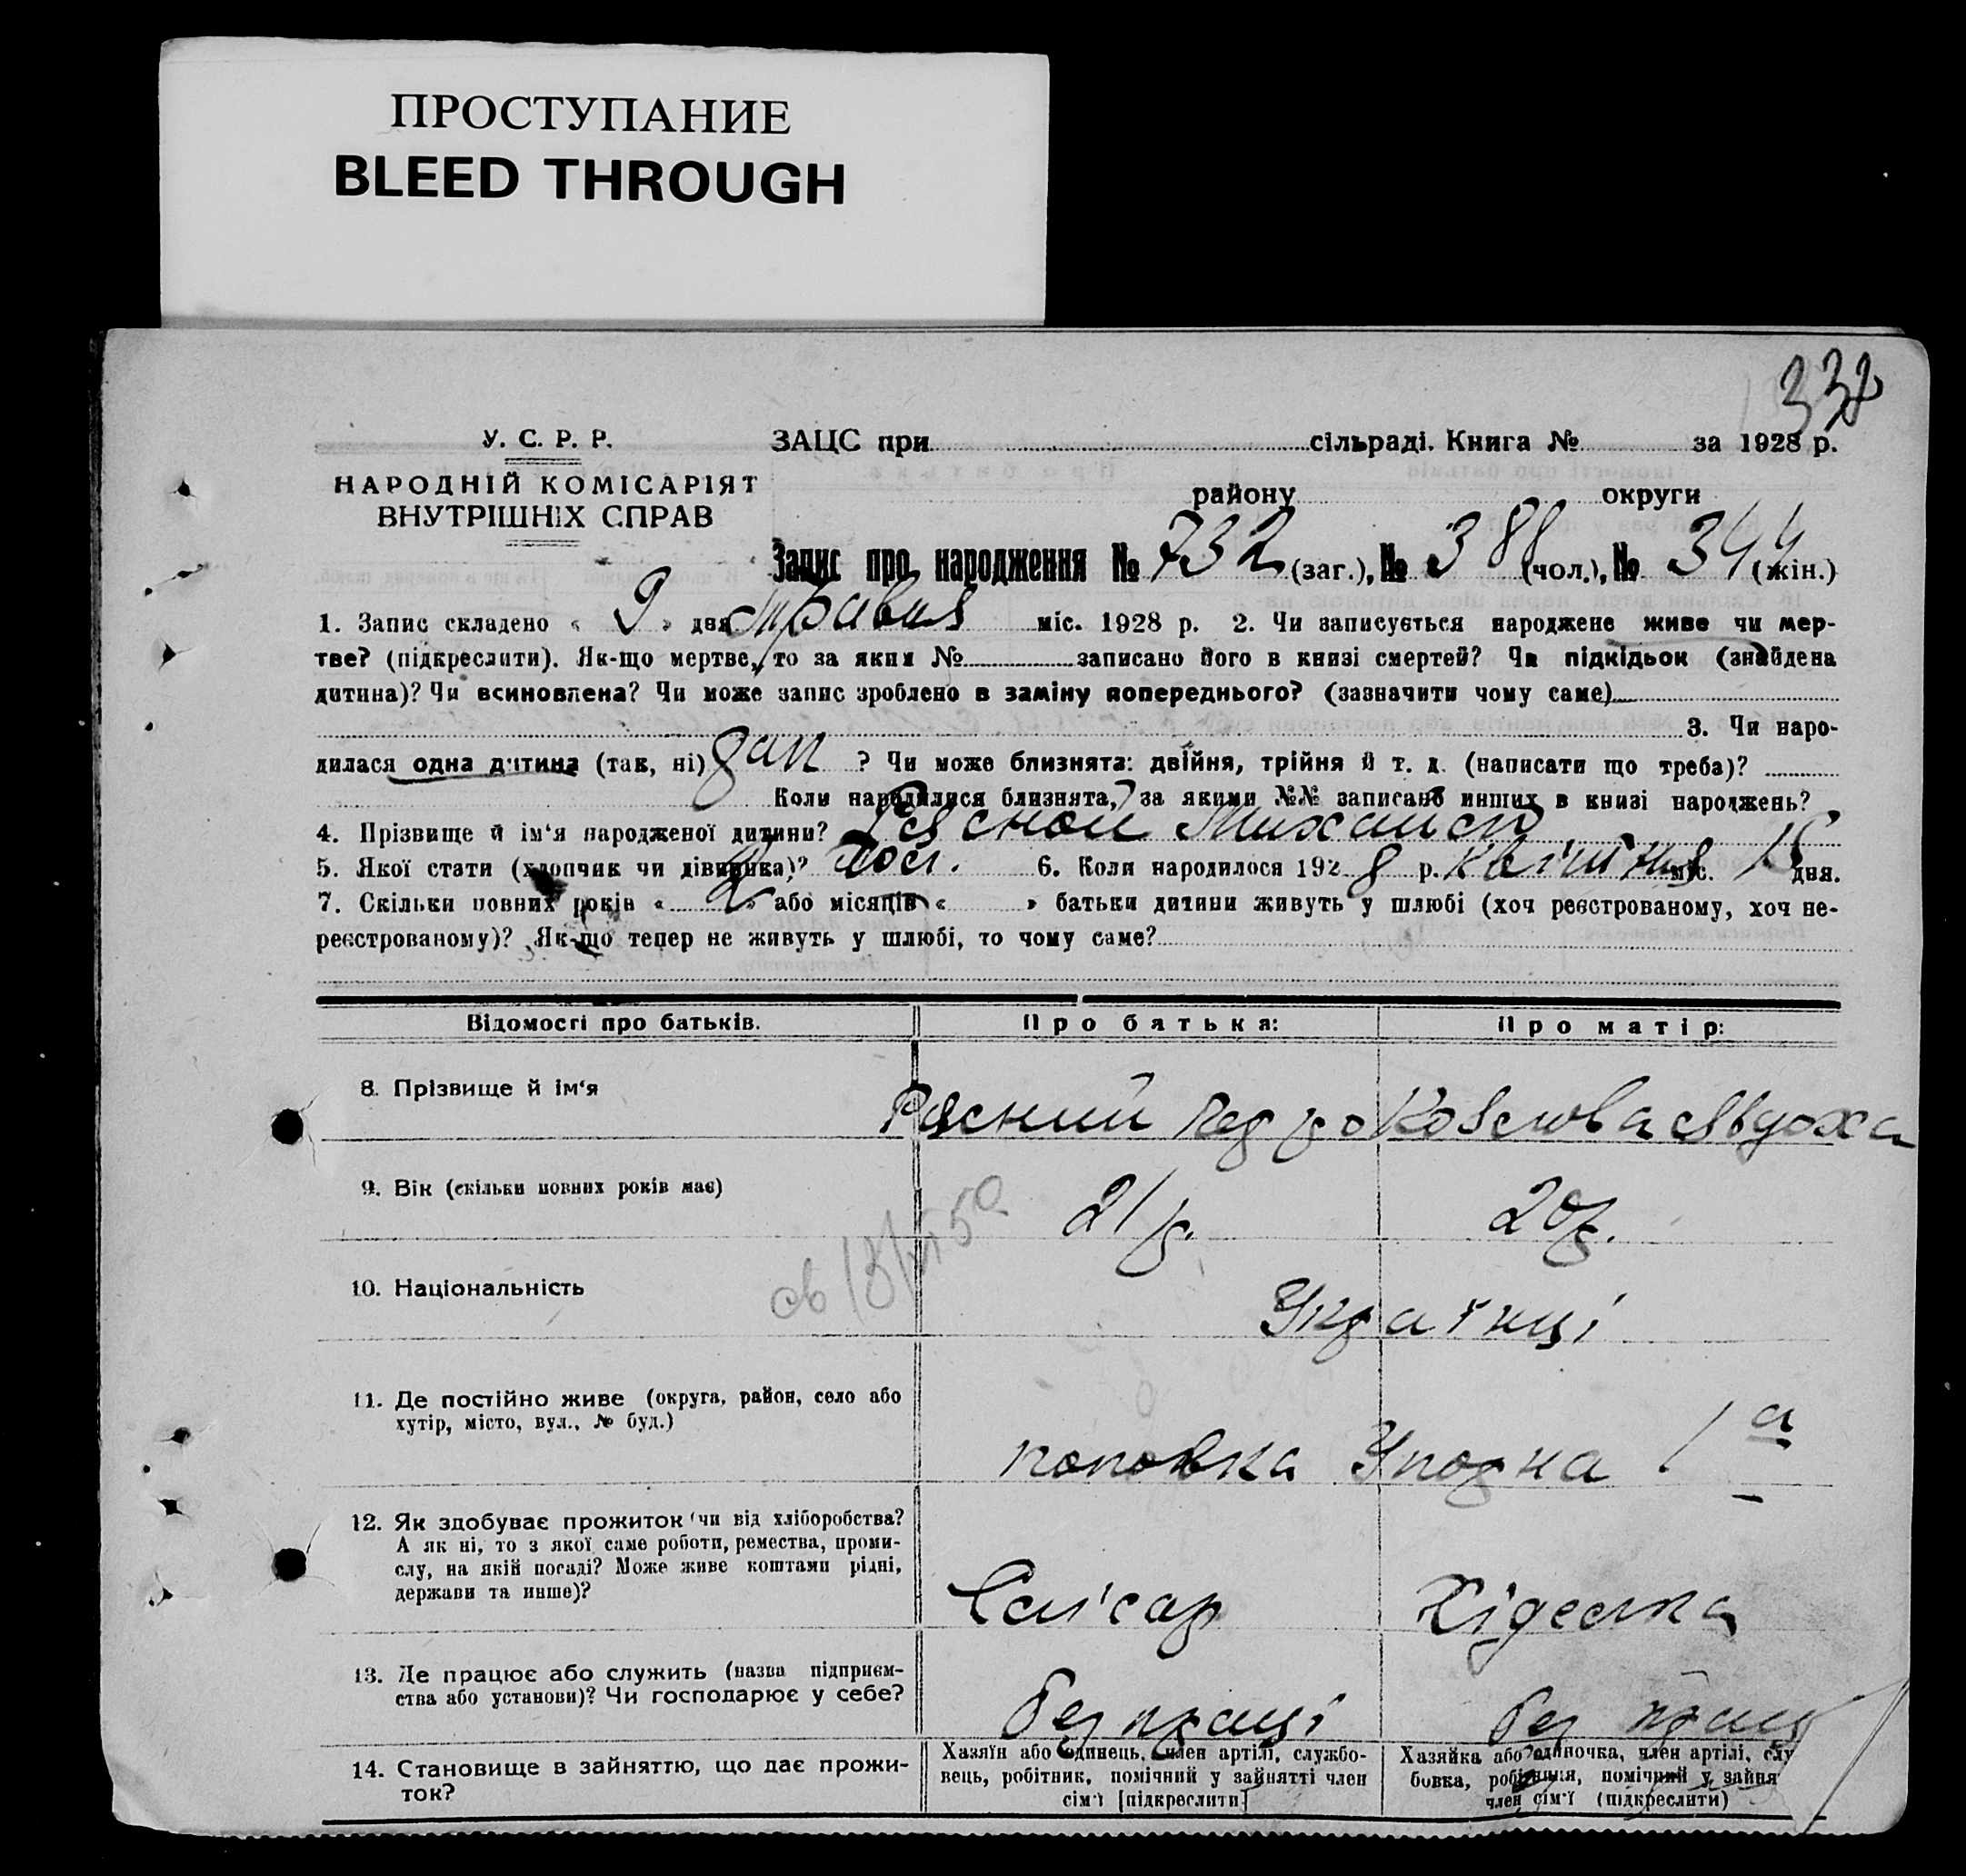 ПРОСТУПАНИЕ
BLEED THROUGH
338
У. С. Р. Р.
ЗАЦС при сільраді. Книга № за 1928 р.
НАРОДНІЙ КОМІСАРІЯТ
ВНУТРІШНІХ СПРАВ
району округи
Запис про народження № 732 (заг.), № 388 (чол.), № 344 (жін.)
1. Запис складено « 9 » дня травня міс. 1928 р. 2. Чи записується народжене живе чи мер-
тве? (підкреслити). Як-що мертве, то за яким № записано його в книзі смертей? Чи підкідьок (знайдена
дитина)? Чи всиновлена? Чи може запис зроблено в заміну попереднього? (зазначити чому саме)
3. Чи наро-
дилася одна дитина (так, ні) ? Чи може близнята: двійня, трійня й т. д. (написати що треба)?
Коли народилися близнята, за якими №№ записано инших в книзі народжень?
4. Прізвище й ім‘я народженої дитини? Рясной Михайло
5. Якої стати (хлопчик чи дівчинка)? чол. 6. Коли народилося 1928 р. квітня міс. 18 дня.
7. Скільки повних років « 2 » або місяців « » батьки дитини живуть у шлюбі (хоч реєстрованому, хоч не-
реєстрованому)? Як-що тепер не живуть у шлюбі, то чому саме?
Відомості про батьків. Про батька: Про матір:
8. Прізвище й ім‘я Рясний Педро Ковзловa Явдоха
9. Вік (скільки повних років має) 21 р. 20 р.
10. Національність Українці
11. Де постійно живе (округа, район, село або
хутір, місто, вул., № буд.)
поповка Упорна 1а
12. Як здобуває прожиток (чи від хліборобства?
А як ні, то з якої саме роботи, ремества, проми-
слу, на якій посаді? Може живе коштами рідні,
держави та инше)?
Слісар
13. Де працює або служить (назва підприєм-
ства або установи)? Чи господарює у себе?
без праці без праці
14. Становище в зайняттю, що дає прожи-
ток?
Хазяїн або одинець, член артілі, службо-
вець, робітник, помічний у зайнятті член
сім‘ї [підкреслити]
Хазяйка або одиночка, член артілі, слу
бовка, робітниця, помічний у зайня
член сім‘ї (підкреслити)